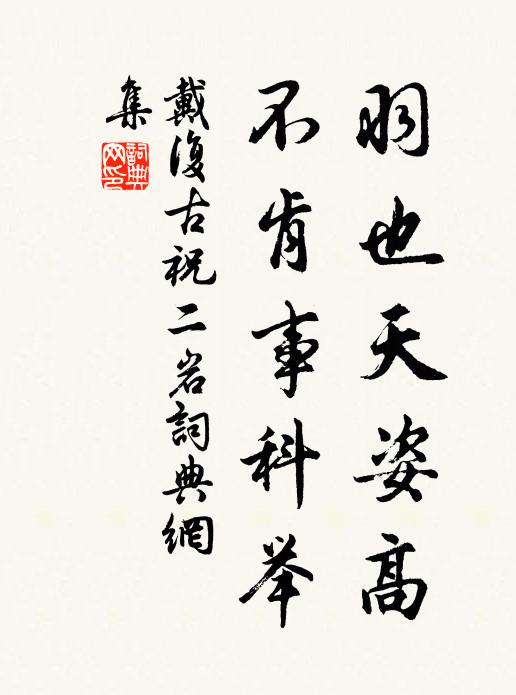 羽也天姿高
不肯事科举
戴復古祝二岩詞典網
集
詞典网印